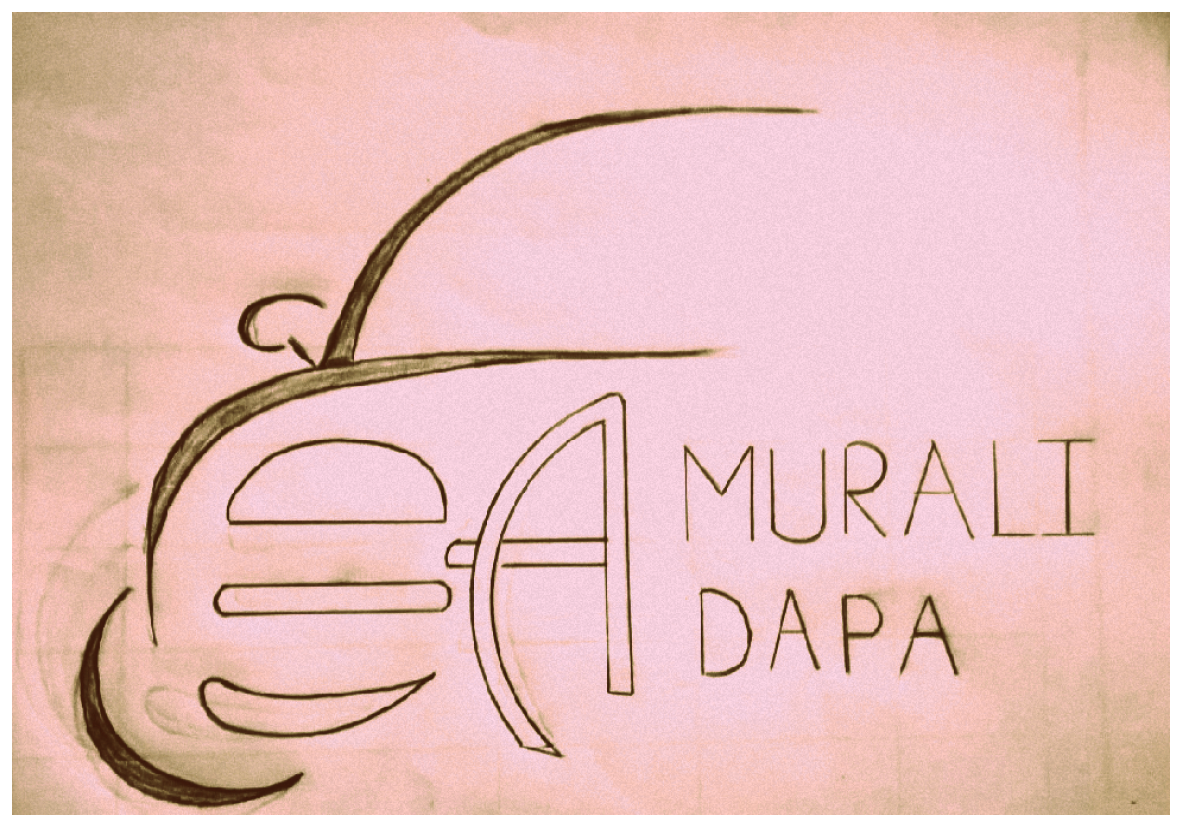 eA
MURALI
DAPA